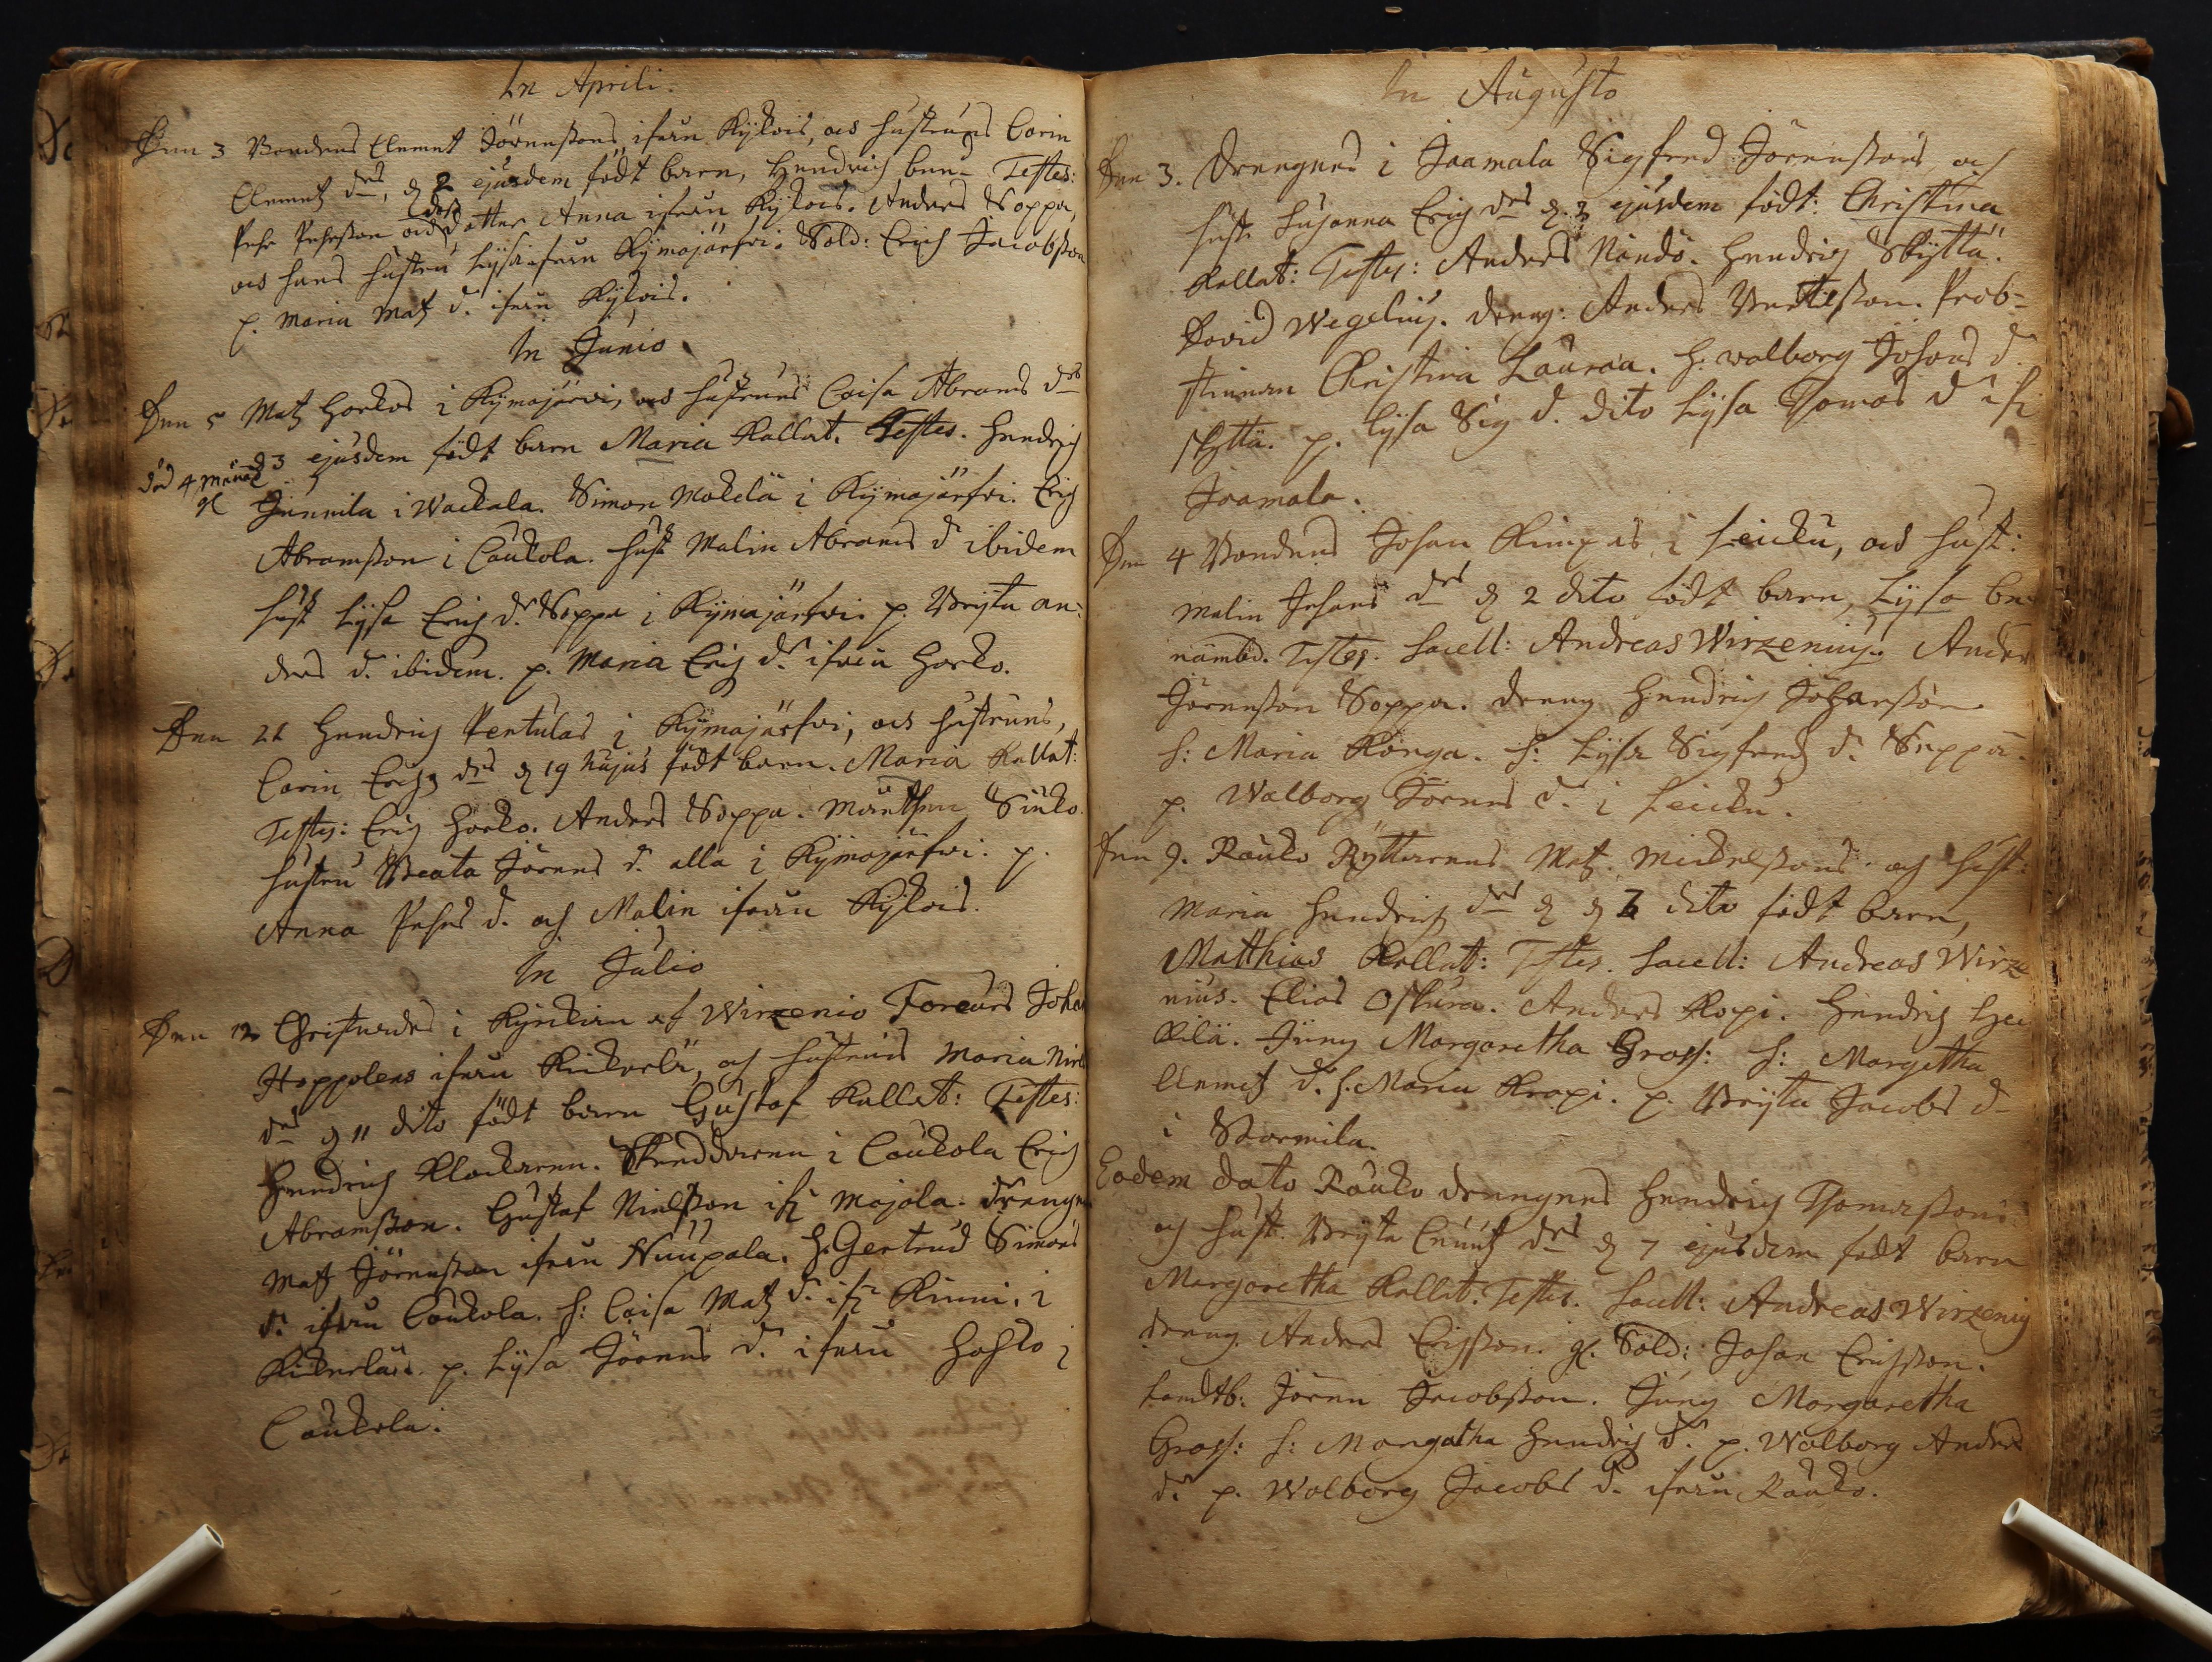 In Aprili.
Den 3 Bondens Clemet Jörenssons, ifrån Kylois, och hustruns Carin
Clemetz drs, d 2 ejusdem födt barn, Hendrich ben= Testes:
Pehr Pehrsson och dess dotter Anna ifrån Kylois. Anders Soppa,
och hans hustru Lysa ifrån Kymajärfvi. Sold: Erich Jacobsson
p. Maria Matz d. ifrån Kylois.
In Junio
Den 5 Matz Horkos i Kymajärvi, och hustruns Caisa Abrams drs
d 3 ejusdem födt barn Maria Kallat. Testes. Hendrich
död 4 månad gl
Junnila i Wackala. Simon Mokelä i Kymajärfvi. Erich
Abramsson i Caukola. hust Malin Abrams dr ibidem
hust Lysa Erichs dr Soppa i Kymajärfvi. p. Bryta An=
ders d. ibidem. p. Maria Erichs dr ifrån Horko.
Den 21 Hendrich Pentulas i Kymajärfvi, och hustruns,
Carin Erichs drs d 19 hujus födt barn. Maria Kallat:
Testes: Erich Horko. Anders Soppa. Sinko.
hustru Beata Jörens d. alla i Kymajärfvi. p.
Anna Pehrs d. och Malin ifrån Kylois.
In Julio
Den 12 Christnades i Kyrckian af Wirzenio Johan
Hoppolens ifrån Kickerlä, och hustruns Maria
drs d 11 dito födt barn Gustaf Kallat: Testes:
Hendrich Klockaren. Skreddaren i Caukola Erich
Abramsson. Gustaf Nielsson ifr Majola. drengen
Matz Jörensson ifrån Nuupala. H: Gertrud Simons
dr ifrån Caukola. h: Caisa Matz dr ifr Kinni. i
Kickerlä. p. Lysa Jörens dr ifrån Hossko i
Caukola.
In Augusto
Den 3. Drengens i Joamala Sigfred Jörenssons och
hust Susanna Erichs drs d. 2 ejusdem födt: Christina
Kallat: Testes: Anders Nändö. Hendrich Skyttä.
David Wegelius. dreng: Anders Bertilsson. Prob=
stinnan Christina Lauraa. h: Walborg Johans d.
Skyttä. p. Lysa Sig d. dito Lysa Tomas d ifr
Joamala.
Den 4 Bondens Johan Kimpas i Leicku, och hust:
Malin Johans drs d 2 dito födt barn, Lysa be
nämbd. Testes. Sacell: Andreas Wirzenius. Anders
Jörensson Soppa. dreng Hendrich Johansson
h: Maria Konga. h: Lysa Sigfredz dr Seppä.
p. Walborg Jörens dr i Leicku.
Den 9. Rauko Ryttarens Matz Mickelssons och hust:
Maria Hendrichs drs d 7 dito födt barn,
Matthias Kallat: Testes. Sacell: Andreas Wirze
nius. Elias Oskura. Anders Kopi. Hendrich Hei
kilä. Jung Margaretha Grass: h: Margetha
Clemetz dr. h: Maria Kropi. p. Bryta Jacobs d
i Stormila.
Eodem dato Rauko drengens Hendrich Tomassons
och hust. Bryta Cnuutz drs d 7 ejusdem födt barn
Margaretha Kallat: Testes. Sacell: Andreas Wirzenius
dreng. Anders Erichsson. gl. Sold: Johan Erichsson.
Landtb: Jören Jacobsson. Jung Margaretha
Grass: h: Margatha Hendrichs dr. p. Walborg Anders
dr p. Walborg Jacobs dr ifrån Rauko.